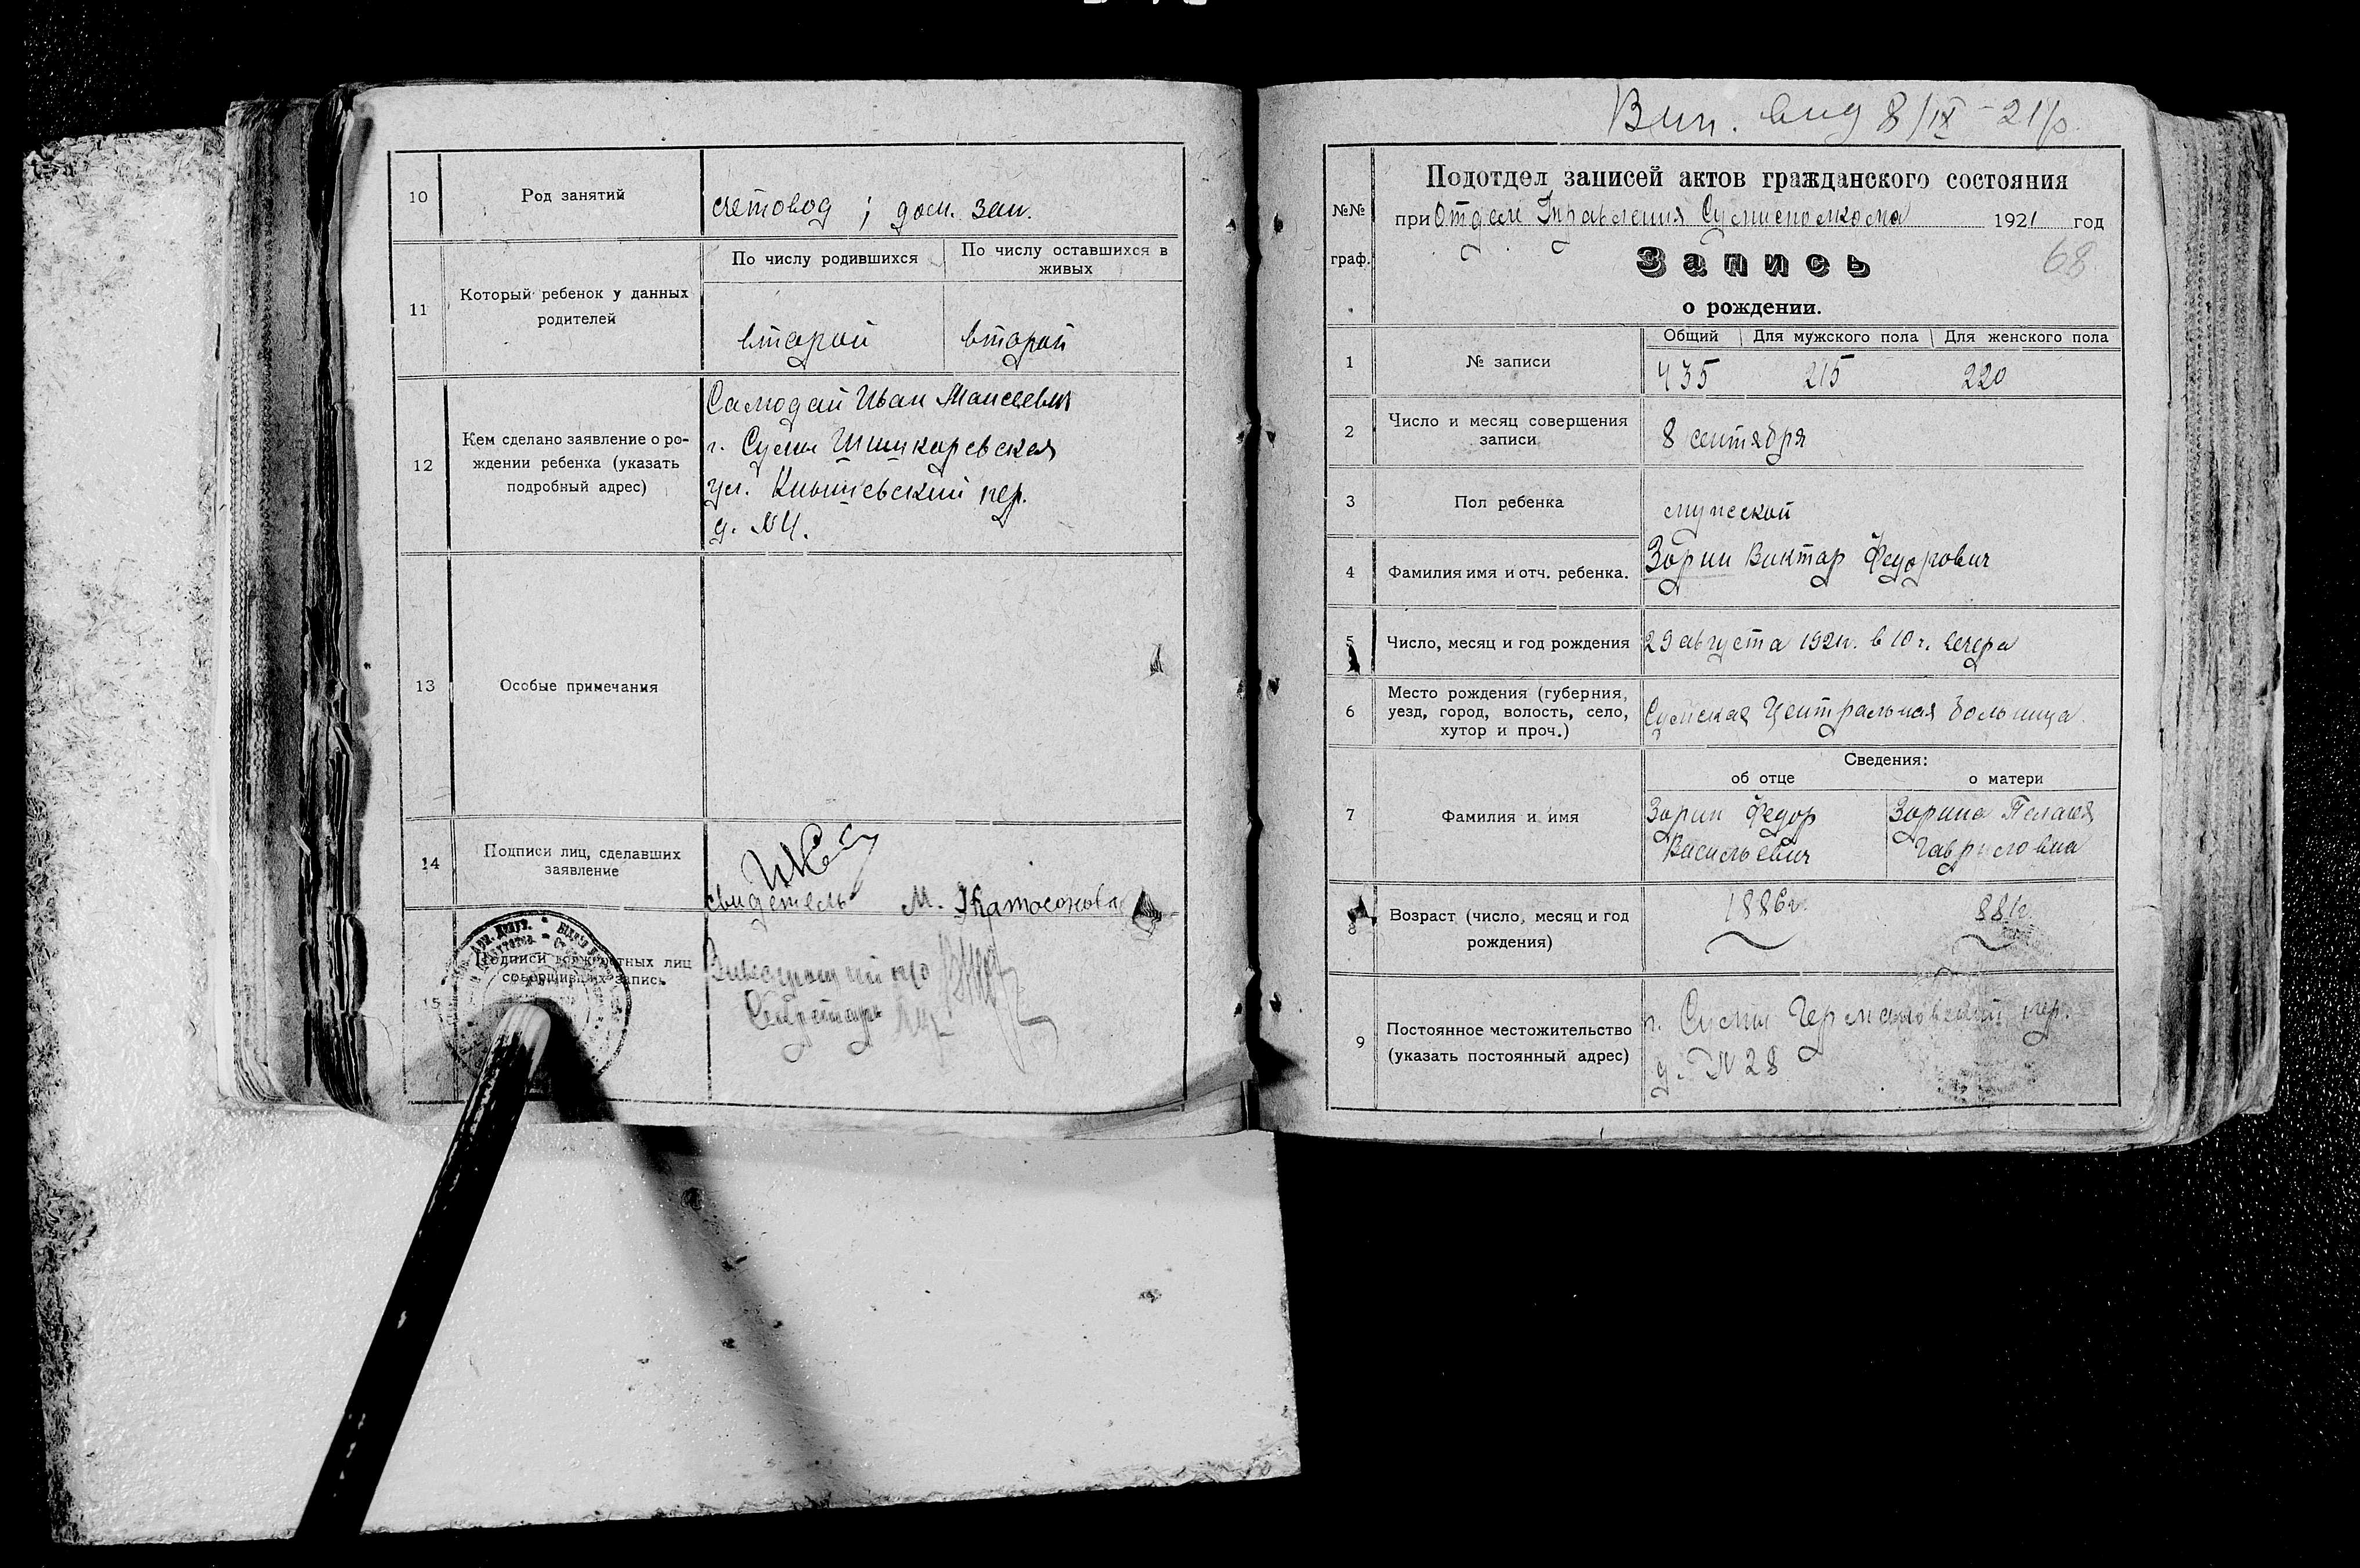 10
Род занятий
счетовод ; дом. зан.
11
Который ребенок у данных
родителей
По числу родившихся
По числу оставшихся в
живых
второй
второй
12
Кем сделано заявление о ро-
ждении ребенка (указать
подробный адрес)
Самодай Иван Моисеевич
г. Сумы Шишкаревская
ул. пер.
д. №4.
13
Особые примечания
14
Подписи лиц, сделавших
заявление
свидетель М.
15
Подписи должностных лиц
совершивших запись
Секретарь
Вип. вид 8/IX-21р.
№№
граф.
Подотдел записей актов гражданского состояния
при Отделе Управления Сумисполкома 1921 год
Запись
68
о рождении.
1
№ записи
Общий Для мужского пола Для женского пола
435 215 220
2
Число и месяц совершения
записи
8 сентября
3
Пол ребенка
мужской
4
Фамилия имя и отч. ребенка.
Зорин Виктор Федорович
5
Число, месяц и год рождения
29 августа 1921г. в 10 ч. вечера
6
Место рождения (губерния,
уезд, город, волость, село,
хутор и проч.)
Сумская Центральная больница
7
Фамилия и имя
Сведения:
об отце
о матери
Зорин Федор
Васильевич
Зорина Пелагея
Гавриловна
8
Возраст (число, месяц и год
рождения)
1886г.
881г.
9
Постоянное местожительство
(указать постоянный адрес)
г. Сумы пер.
д. №28